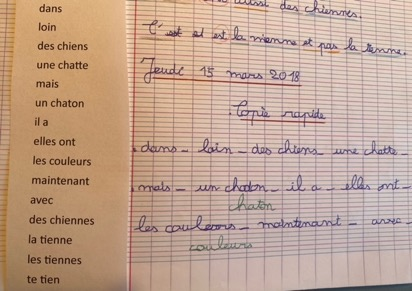 dans
loin
des chiens
une chatte
mais
un chaton
il a
elles ont
les couleurs
maintenant
avec
des chiennes
la tienne
les tiennes
te tien
aussi des chiennes.
C'est et est la mienne et pas la tienne.
Jeudi 15 mars 2018
Copie rapide
. dans _ loin _ des chiens _ une chatte _
. mais _ un chaton _ il a _ elles ont _
chaton
les couleurs _ maintenant _ avec _
couleurs